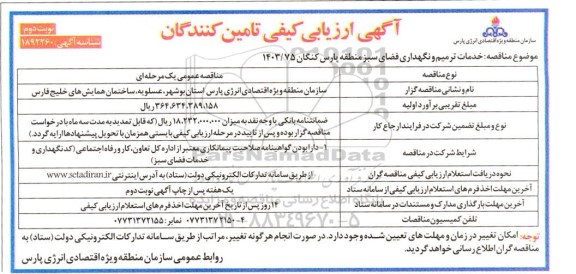 نوبت دوم
شناسه آگهی: ۱۸۹۲۲۶۰
آگهی ارزیابی کیفی تامین کنندگان
سازمان منطقه ویژه اقتصادی انرژی پارس
موضوع مناقصه: خدمات ترمیم و نگهداری فضای سبز منطقه پارس کنگان ۱۴۰۳/۷۵
نوع مناقصه	مناقصه عمومی یک مرحله‌ای
نام و نشانی مناقصه گزار	سازمان منطقه ویژه اقتصادی انرژی پارس استان بوشهر، عسلویه، ساختمان همایش های خلیج فارس
مبلغ تقریبی برآورد اولیه	۳۶۴,۶۳۴,۳۸۹,۱۵۸ ریال
نوع و مبلغ تضمین شرکت در فرایند ارجاع کار	ضمانتنامه بانکی یا وجه نقد به میزان ۱۸,۲۳۲,۰۰۰,۰۰۰ ریال (که قابل تمدید به مدت سه ماه با درخواست
مناقصه گزار بوده و پس از تایید در مرحله ارزیابی کیفی بایستی همزمان با تحویل پیشنهادها ارایه گردد.)
شرایط شرکت در مناقصه	۱- دارا بودن گواهینامه صلاحیت پیمانکاری معتبر از اداره کل تعاون، کار و رفاه اجتماعی (کد نگهداری و
خدمات فضای سبز)
نحوه دریافت استعلام ارزیابی کیفی مناقصه گران	از طریق سامانه تدارکات الکترونیکی دولت (ستاد) به آدرس اینترنتی www.setadiran.ir
آخرین مهلت اخذ فرم های استعلام ارزیابی کیفی از سامانه ستاد	یک هفته پس از چاپ آگهی نوبت دوم
آخرین مهلت بارگذاری مدارک و مستندات در سامانه ستاد	۱۴ روز پس از تاریخ آخرین مهلت اخذ فرم های استعلام ارزیابی کیفی
تلفن کمیسیون مناقصات	۰۷۷۳۱۳۷۲۱۵۰-۴ نمابر: ۰۷۷۳۱۳۷۲۱۵۵
توجه: امکان تغییر در زمان و مهلت های تعیین شده وجود دارد. در صورت انجام هرگونه تغییر، مراتب از طریق سامانه تدارکات الکترونیکی دولت (ستاد) به
مناقصه گران اطلاع رسانی خواهد گردید.
روابط عمومی سازمان منطقه ویژه اقتصادی انرژی پارس